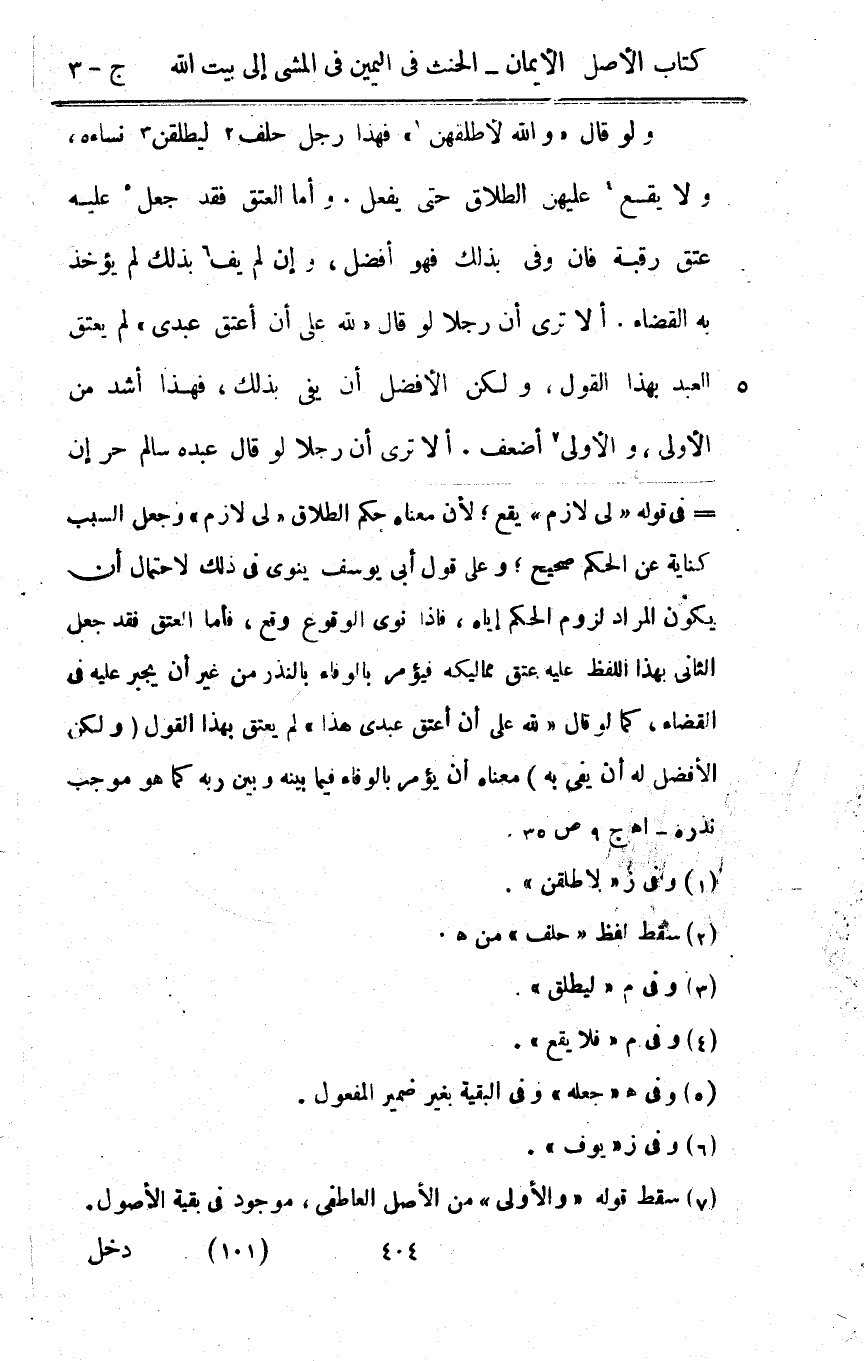 كتاب الأصل الأيمان – الحنث فى اليمين فى المشى إلى بيت الله ج - ٣
و لو قال « و الله لأطلقهن ١ » فهذا رجل حلف ٢ ليطلقن ٣ نساءه ،
و لا يقع ٤ عليهن الطلاق حتى يفعل . و أما العتق فقد جعل ٥ عليه
عتق رقبة فان وفى بذلك فهو أفضل ، و إن لم يف ٦ بذلك لم يؤخذ
به القضاء . ألا ترى أن رجلا لو قال « لله على أن أعتق عبدى » لم يعتق
٥ العبد بهذا القول ، و لكن الأفضل أن يفى بذلك ، فهذا أشد من
الأولى ، و الأولى ٧ أضعف . ألا ترى أن رجلا لو قال عبده سالم حر إن
= فى قوله « لى لازم » يقع ؛ لأن معناه حكم الطلاق « لى لازم » وجعل السبب
كناية عن الحكم صحيح ؛ و على قول أبى يوسف ينوى فى ذلك لاحتمال أن
يكون المراد لزوم الحكم إياه ، فاذا نوى الوقوع وقع ، فأما العتق فقد جعل
الثانى بهذا اللفظ عليه عتق مماليكه فيؤمر بالوفاء بالنذر من غير أن يجبر عليه فى
القضاء ، كما لو قال « لله على أن أعتق عبدى هذا » لم يعتق بهذا القول ( و لكن
الأفضل له أن يفى به ) معناه أن يؤمر بالوفاء فيما بينه و بين ربه كما هو موجب
نذره – اهـ ج ٩ ص ٣٥ .
(١) و فى ز « لاطلقن » .
(٢) سقط لفظ « حلف » من ه .
(٣) و فى م « ليطلق » .
(٤) و فى م « فلا يقع » .
(٥) و فى ه « جعله » و فى البقية بغير ضمير المفعول .
(٦) و فى ز « يوف » .
(٧) سقط قوله « والأولى » من الأصل العاطفى ، موجود فى بقية الأصول .
٤٠٤ (١٠١) دخل